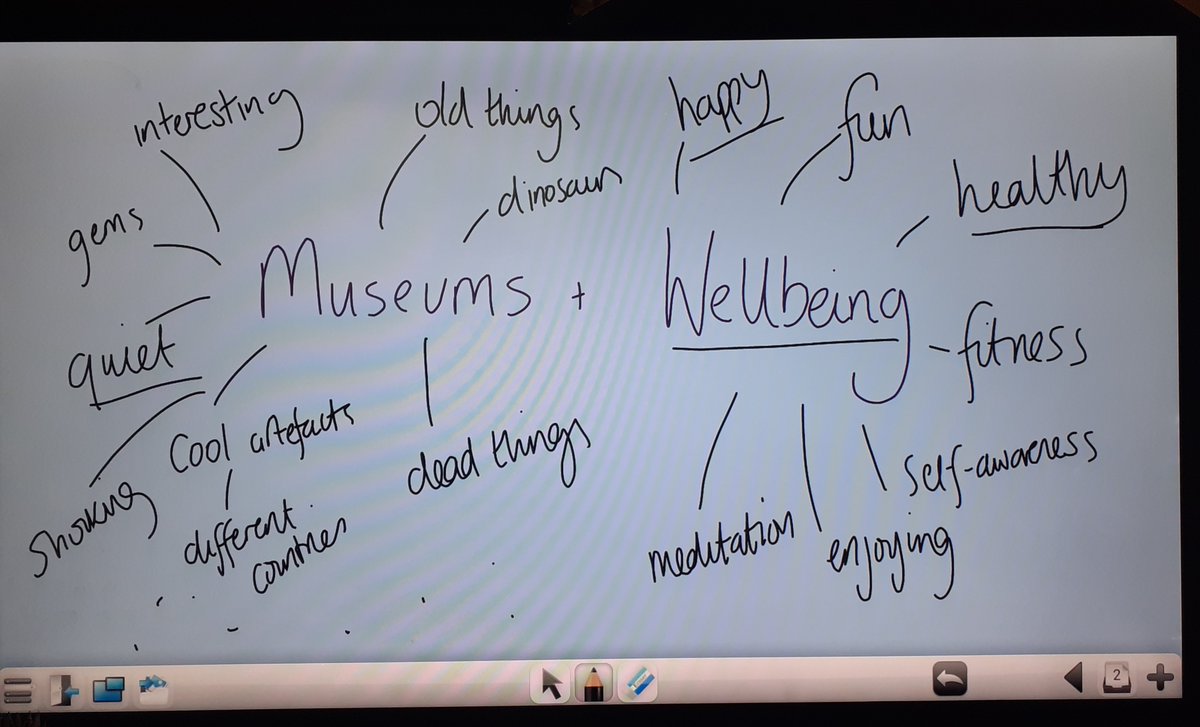 interesting
old things
happy
fun
dinosaurs
healthy
gems
Museums + Wellbeing
quiet
fitness
Cool artefacts
dead things
self-awareness
different
countries
meditation
enjoying
2